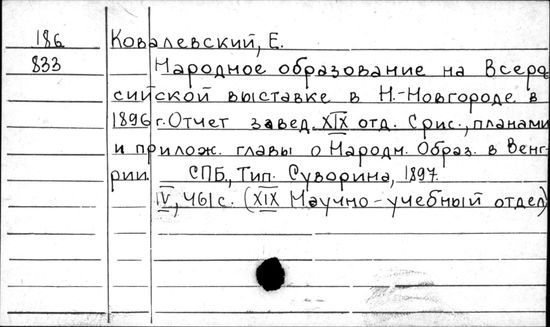 186 Ковалевский, Е.
833 Народное образование на Всеро
сийской выставке в Н.-Новгороде в
1896 г. Отчет завед. XIX отд. С рис., планами
и прилож. главы о Народн. Образ. в Венг-
рии. СПБ., Тип. Суворина, 1897.
IV, 461 с. (XIX Научно-учебный отдел)